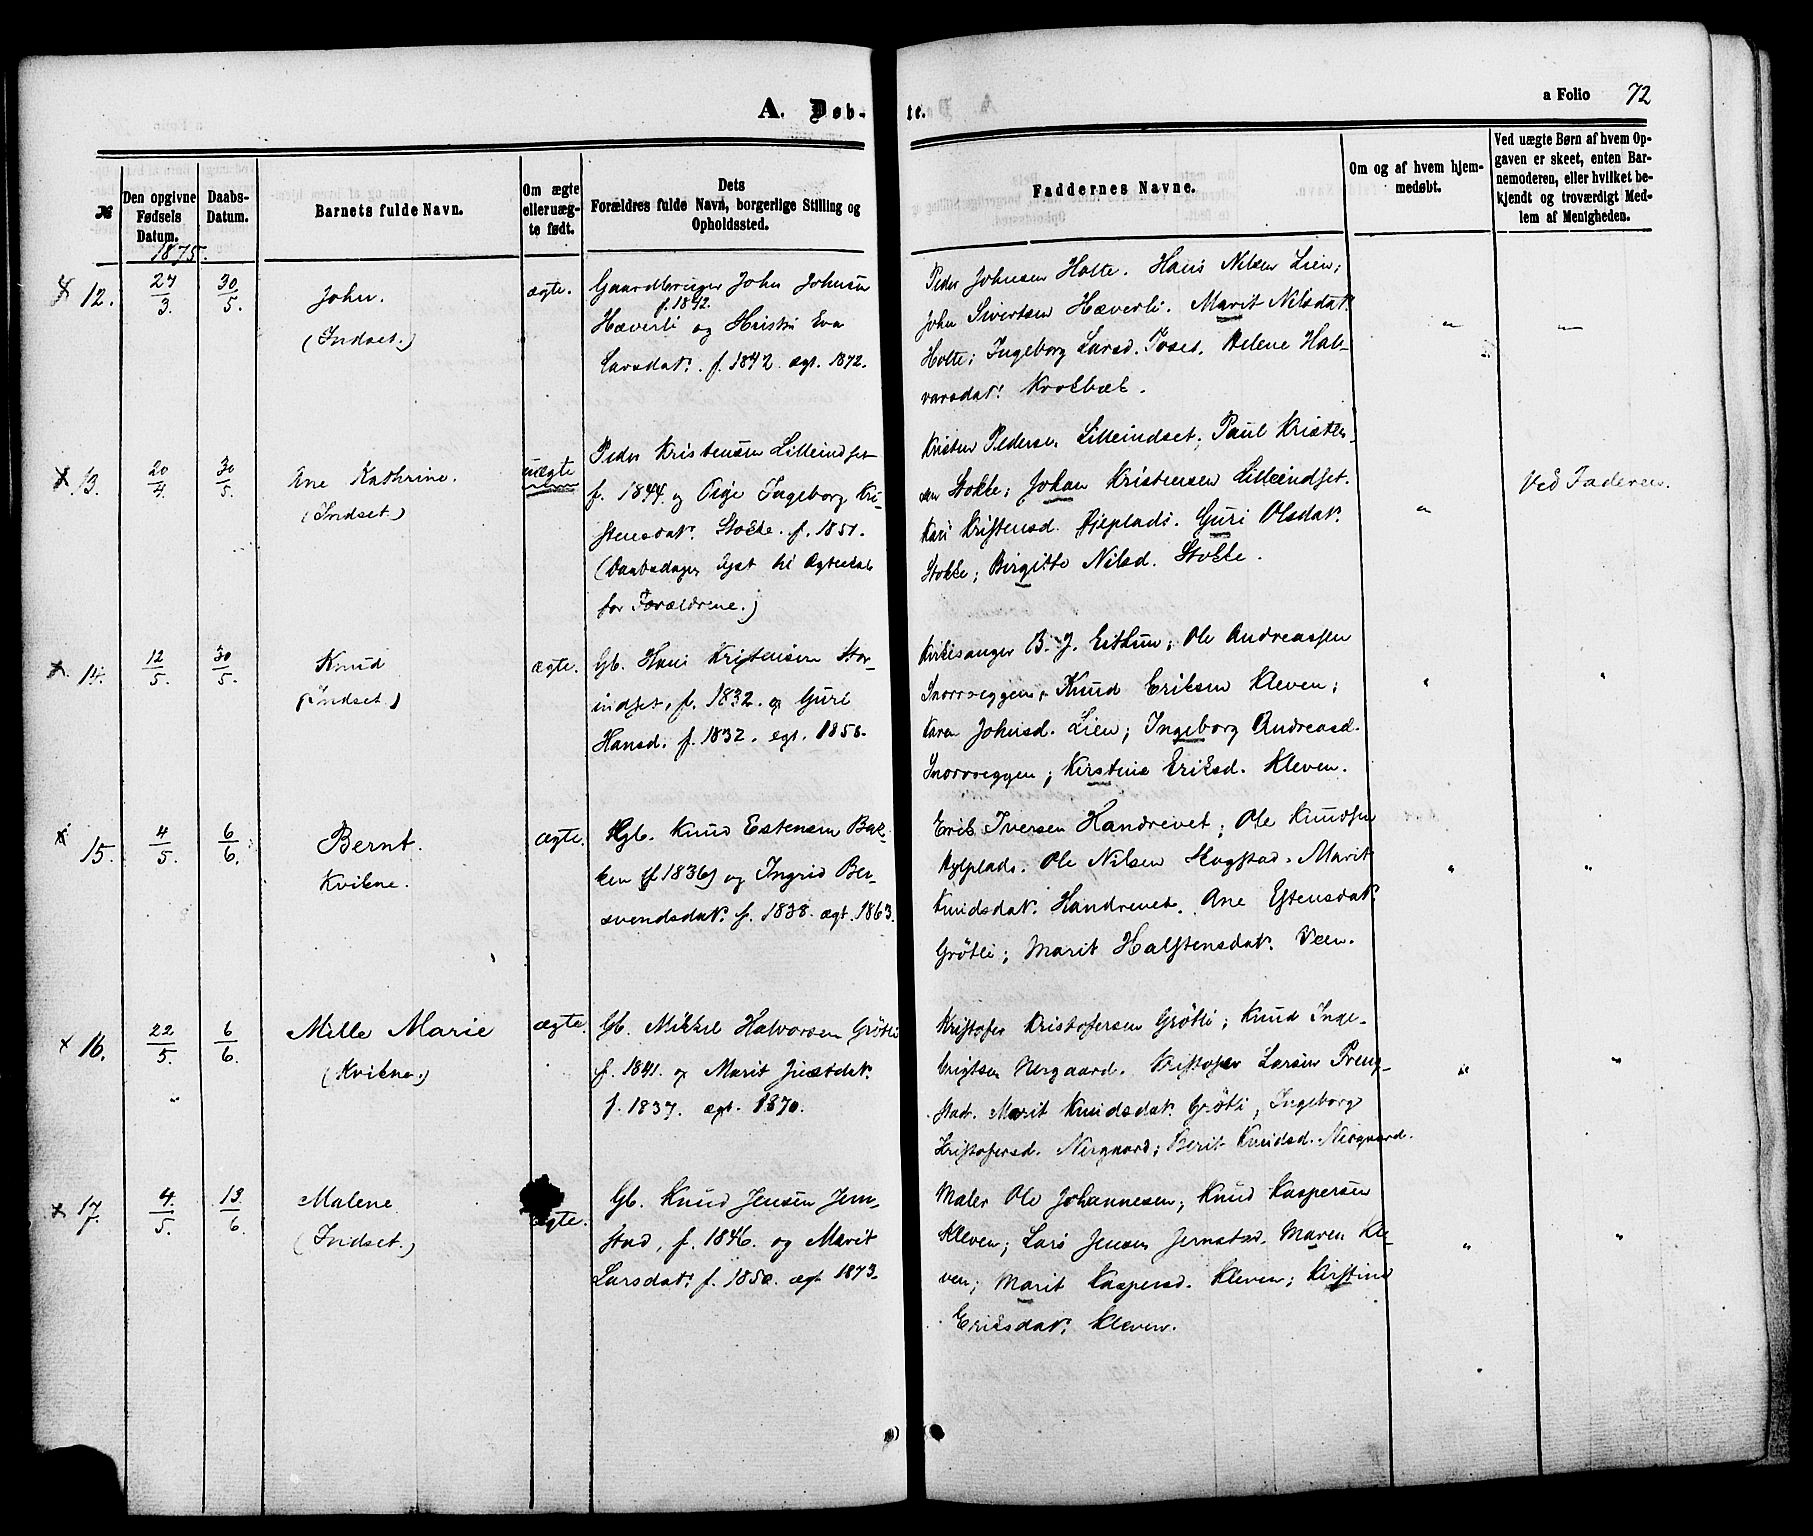 A. Døb-
te.
a Folio 72
№
Den opgivne
Fødsels
Datum.
Daabs-
Datum.
Barnets fulde Navn.
Om ægte
eller uæg-
te født.
Dets
Forældres fulde Navn, borgerlige Stilling og
Opholdssted.
Faddernes Navne.
Om og af hvem hjem-
medøbt.
Ved uægte Børn af hvem Op-
gaven er skeet, enten Bar-
nemoderen, eller hvilket be-
kjendt og troværdigt Med-
lem af Menigheden.
1875.
12.
27/3.
30/5.
John.
(Indset.)
ægte.
Gaardbruger John Johnsen
f. 1842.
Hæverli og Kristi Eva
Larsdat. f. 1842. ægt. 1872.
Peder Johnsen Holte. Hans Nilsen Lien;
John Sivertsen Hæverli. Marit Nilsdat.
Holte; Ingeborg Larsd. Moset. Helene Hal-
varsdat: Krokbæk.
"
"
13.
20/4.
30/5.
Ane Kathrine.
(Indset.)
uægte
Peder Kristensen Lilleindset
f. 1844. og Ingeborg Kri-
stensdat. Stokke. f. 1851.
(Daabsdagen lyst til Ægteskab
for Forældrene.)
Kristen Pedersen Lilleindset; Paul Kristen-
sen Stokke; Johan Kristensen Lilleindset.
Kari Kristensd. Guri Olsdat.
Stokke; Birgitte Nilsd. Stokke.
"
Ved Faderen.
14.
12/5.
30/5.
Knud
(Indset)
ægte.
Gb. Hans Kristensen Stor-
indset, f. 1832. og Guri
Hansd. f. 1832. ægt. 1858.
Kirkesanger B. J. Esthun; Ole Andreassen
Snorroeggen, Knud Eriksen Kleven;
Karen Johnsd. Lien; Ingeborg Andreasd.
Snorroeggen; Kirstine Eriksd. Kleven.
"
"
15.
4/5.
6/6.
Bernt.
Kvikne.
ægte.
Hgb. Knud Estensen Bak-
ken (f 1836) og Ingrid Ber-
svendsdat. f. 1838. ægt. 1863.
Erik Iversen Handrevet; Ole Knudsen
Ole Nilsen Skogstad. Marit
Knudsdat. Handrevet. Ane Estensdat.
Grötli; Marit Halstensdat. Veen.
"
"
16.
22/5.
6/6.
Mille Marie
(Kvikne.)
"
ægte.
Gb. Mikkel Halvorsen Gröthi
f. 1841. og Marit Justdat.
f. 1837. ægt. 1870.
Kristofer Kristofersen Gröthi; Knud Inge-
brigtsen Nergaard. Kristofer Larsen Preng-
stad. Marit Knudsdat. Gröthi; Ingeborg
Kristofersd. Nergaard; Berit Knudsd. Nergaard.
"
"
17.
4./5.
13/6.
Malene
(Indset.)
ægte.
Gb. Knud Jensen Jern-
stad, f. 1846. og Marit
Larsdat: f. 1850. ægt. 1873.
Maler Ole Johannesen; Knud Kaspersen
Kleven; Lars Jensen Jernstad. Maren Kle-
ven; Marit Kaspersd. Kleven; Kirstine
Eriksdat. Kleven.
"
"